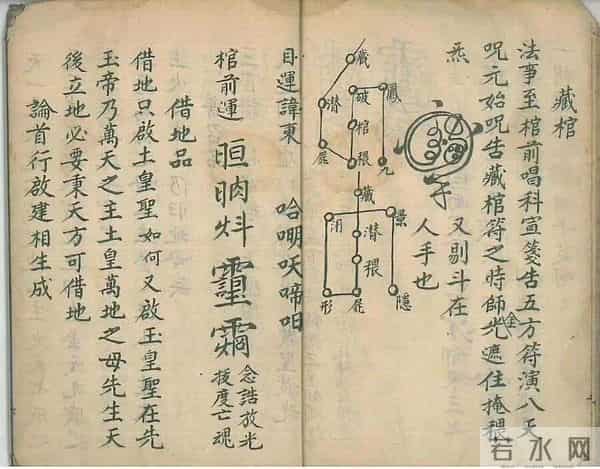 藏棺
法事至棺前唱科宣箋告五方符演八天
呪元始呪告藏棺符之時師先金遮住掩穢
炁
又剔斗在
人手也
藏
鳳
破
潛
棺
尾
穢
九
藏
景
消
潛
穢
形
尾
隱
目運諱東
哈唎吙啼呾
棺前運
念誥放光
援度亡魂
借地品
借地只啟土皇聖如何又啟玉皇聖在先
玉帝乃萬天之主土皇萬地之母先生天
後立地必要秉天方可借地
論首行啟建相生成
若水网